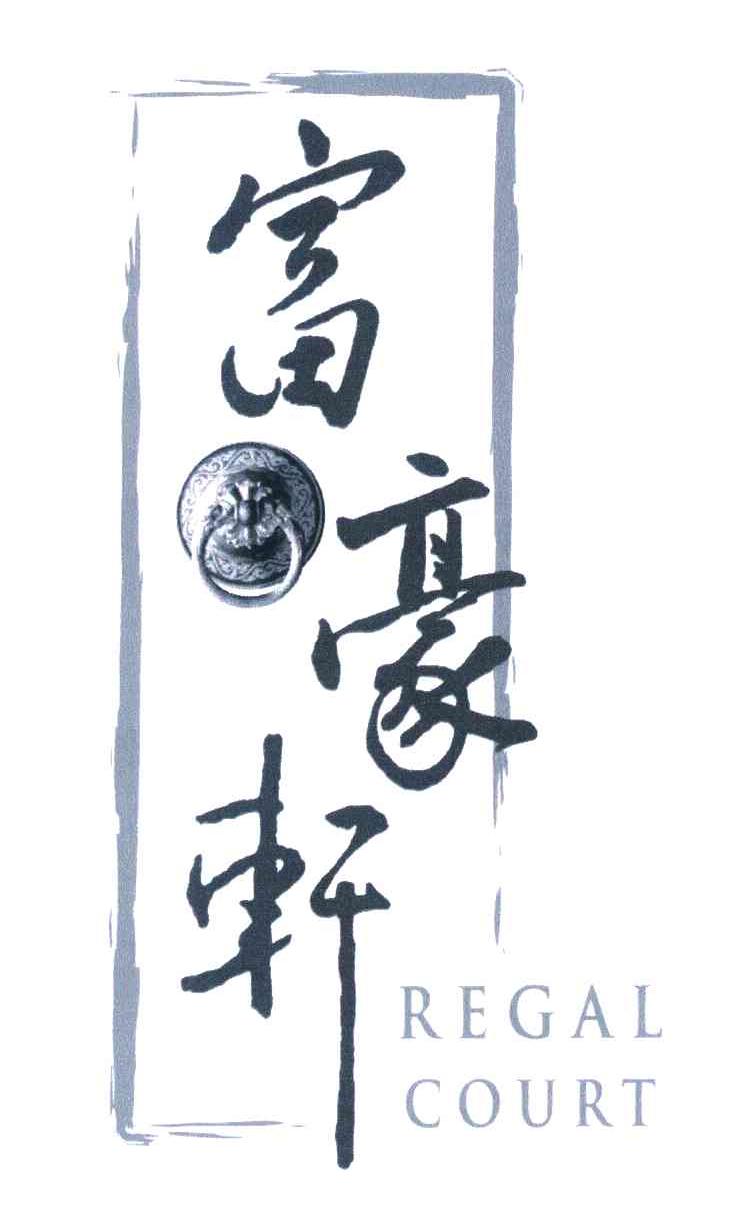 富豪軒
REGAL
COURT